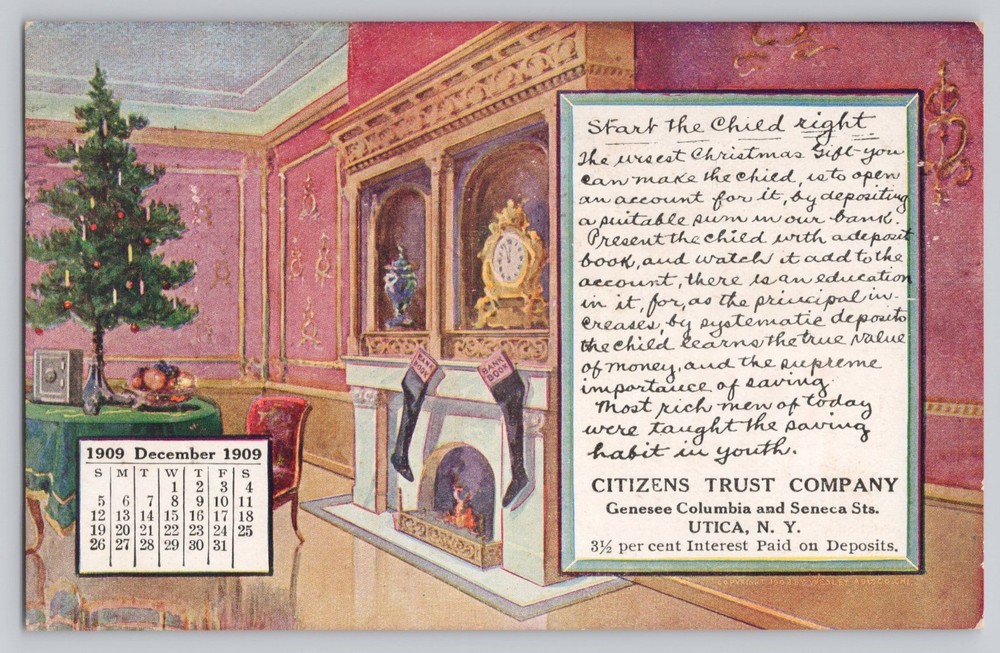 Start the Child right
The wisest Christmas Gift you
can make the child, is to open
an account for it, by depositing
a suitable sum in our bank.
Present the child with a deposit
book, and watch it add to the
account, there is an education
in it, for, as the principal in-
creases, by systematic deposits
the child learns the true value
of money, and the supreme
importance of saving.
Most rich men of today
were taught the saving
habit in youth.
CITIZENS TRUST COMPANY
Genesee Columbia and Seneca Sts.
UTICA, N. Y.
3½ per cent Interest Paid on Deposits.
BANK BOOK
BANK BOOK
1909 December 1909
S M T W T F S
1 2 3 4
5 6 7 8 9 10 11
12 13 14 15 16 17 18
19 20 21 22 23 24 25
26 27 28 29 30 31
COPYRIGHT